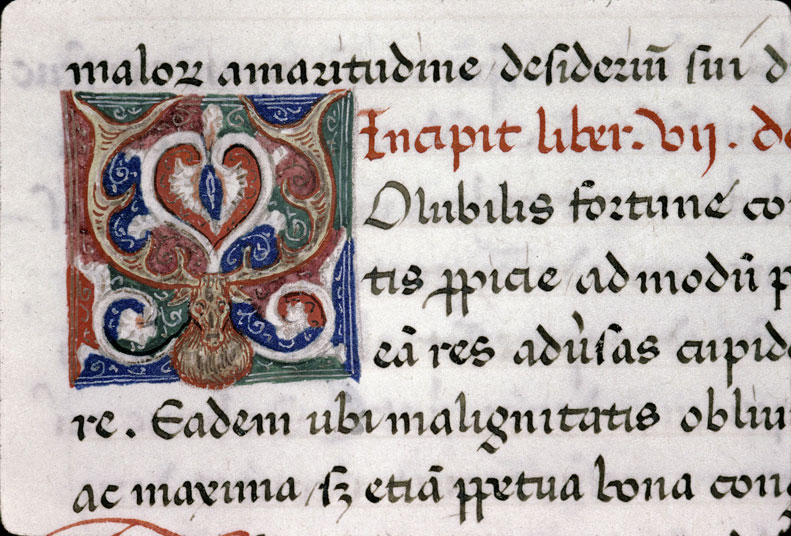 malorꝝ amaritudine desideriū sui d
Incipit liber. vij. de
VOlubilis fortune co
tis ꝑspicie admodū p
eā res adu̾sas cupid
re. Eadem ubi malignitatis obliu
ac maxima / sꝫ etiā ꝑpetua bona cong